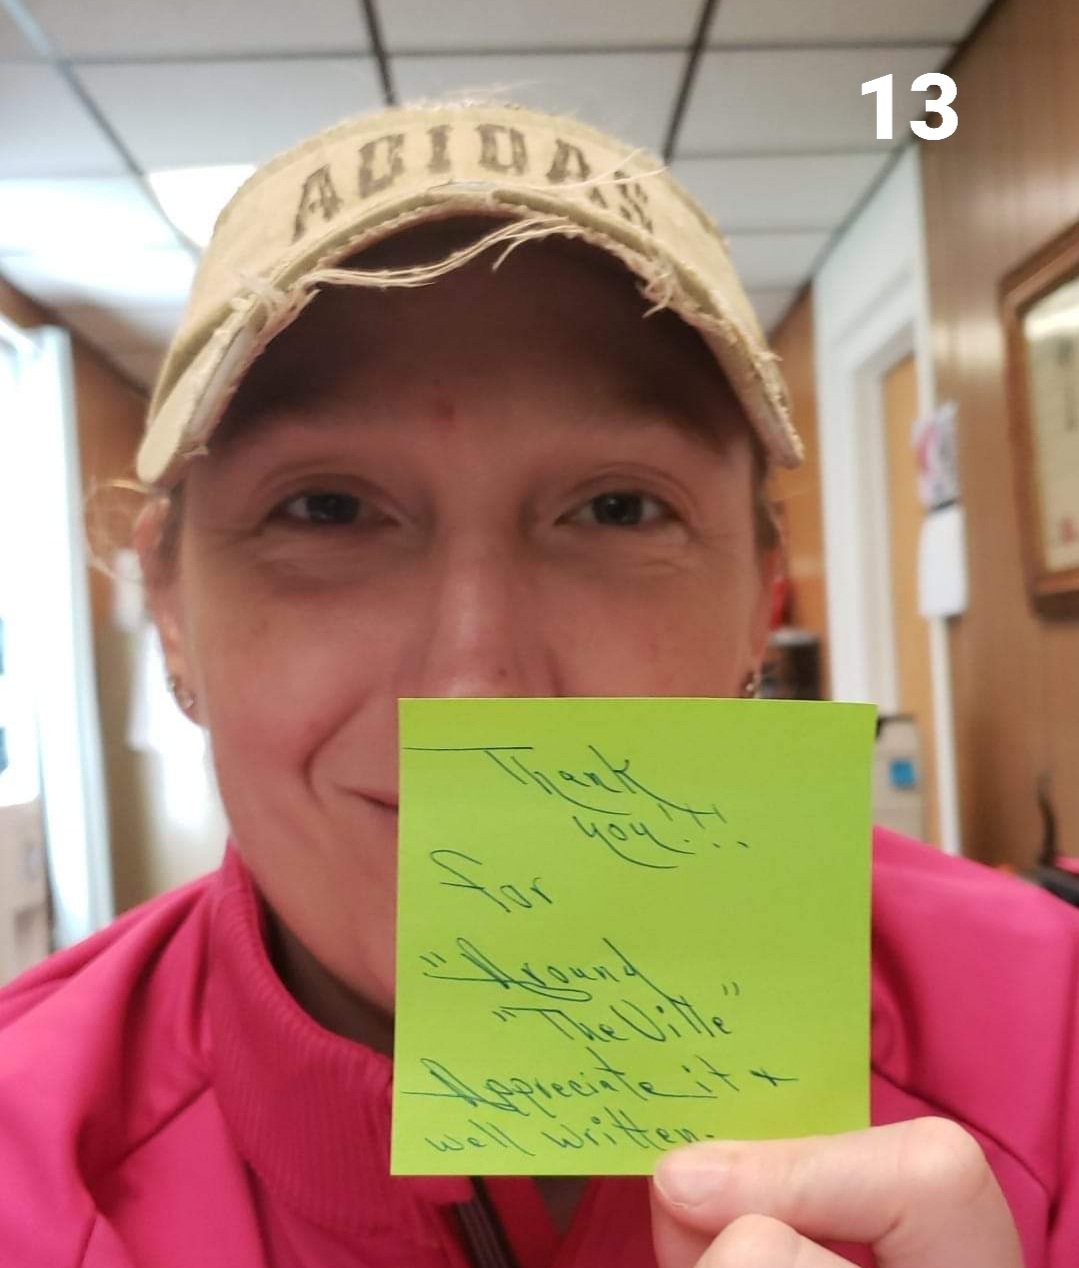 13
ADIDAS
Thank
you!!!
for
"Around
"The Ville"
Appreciate it +
well written.